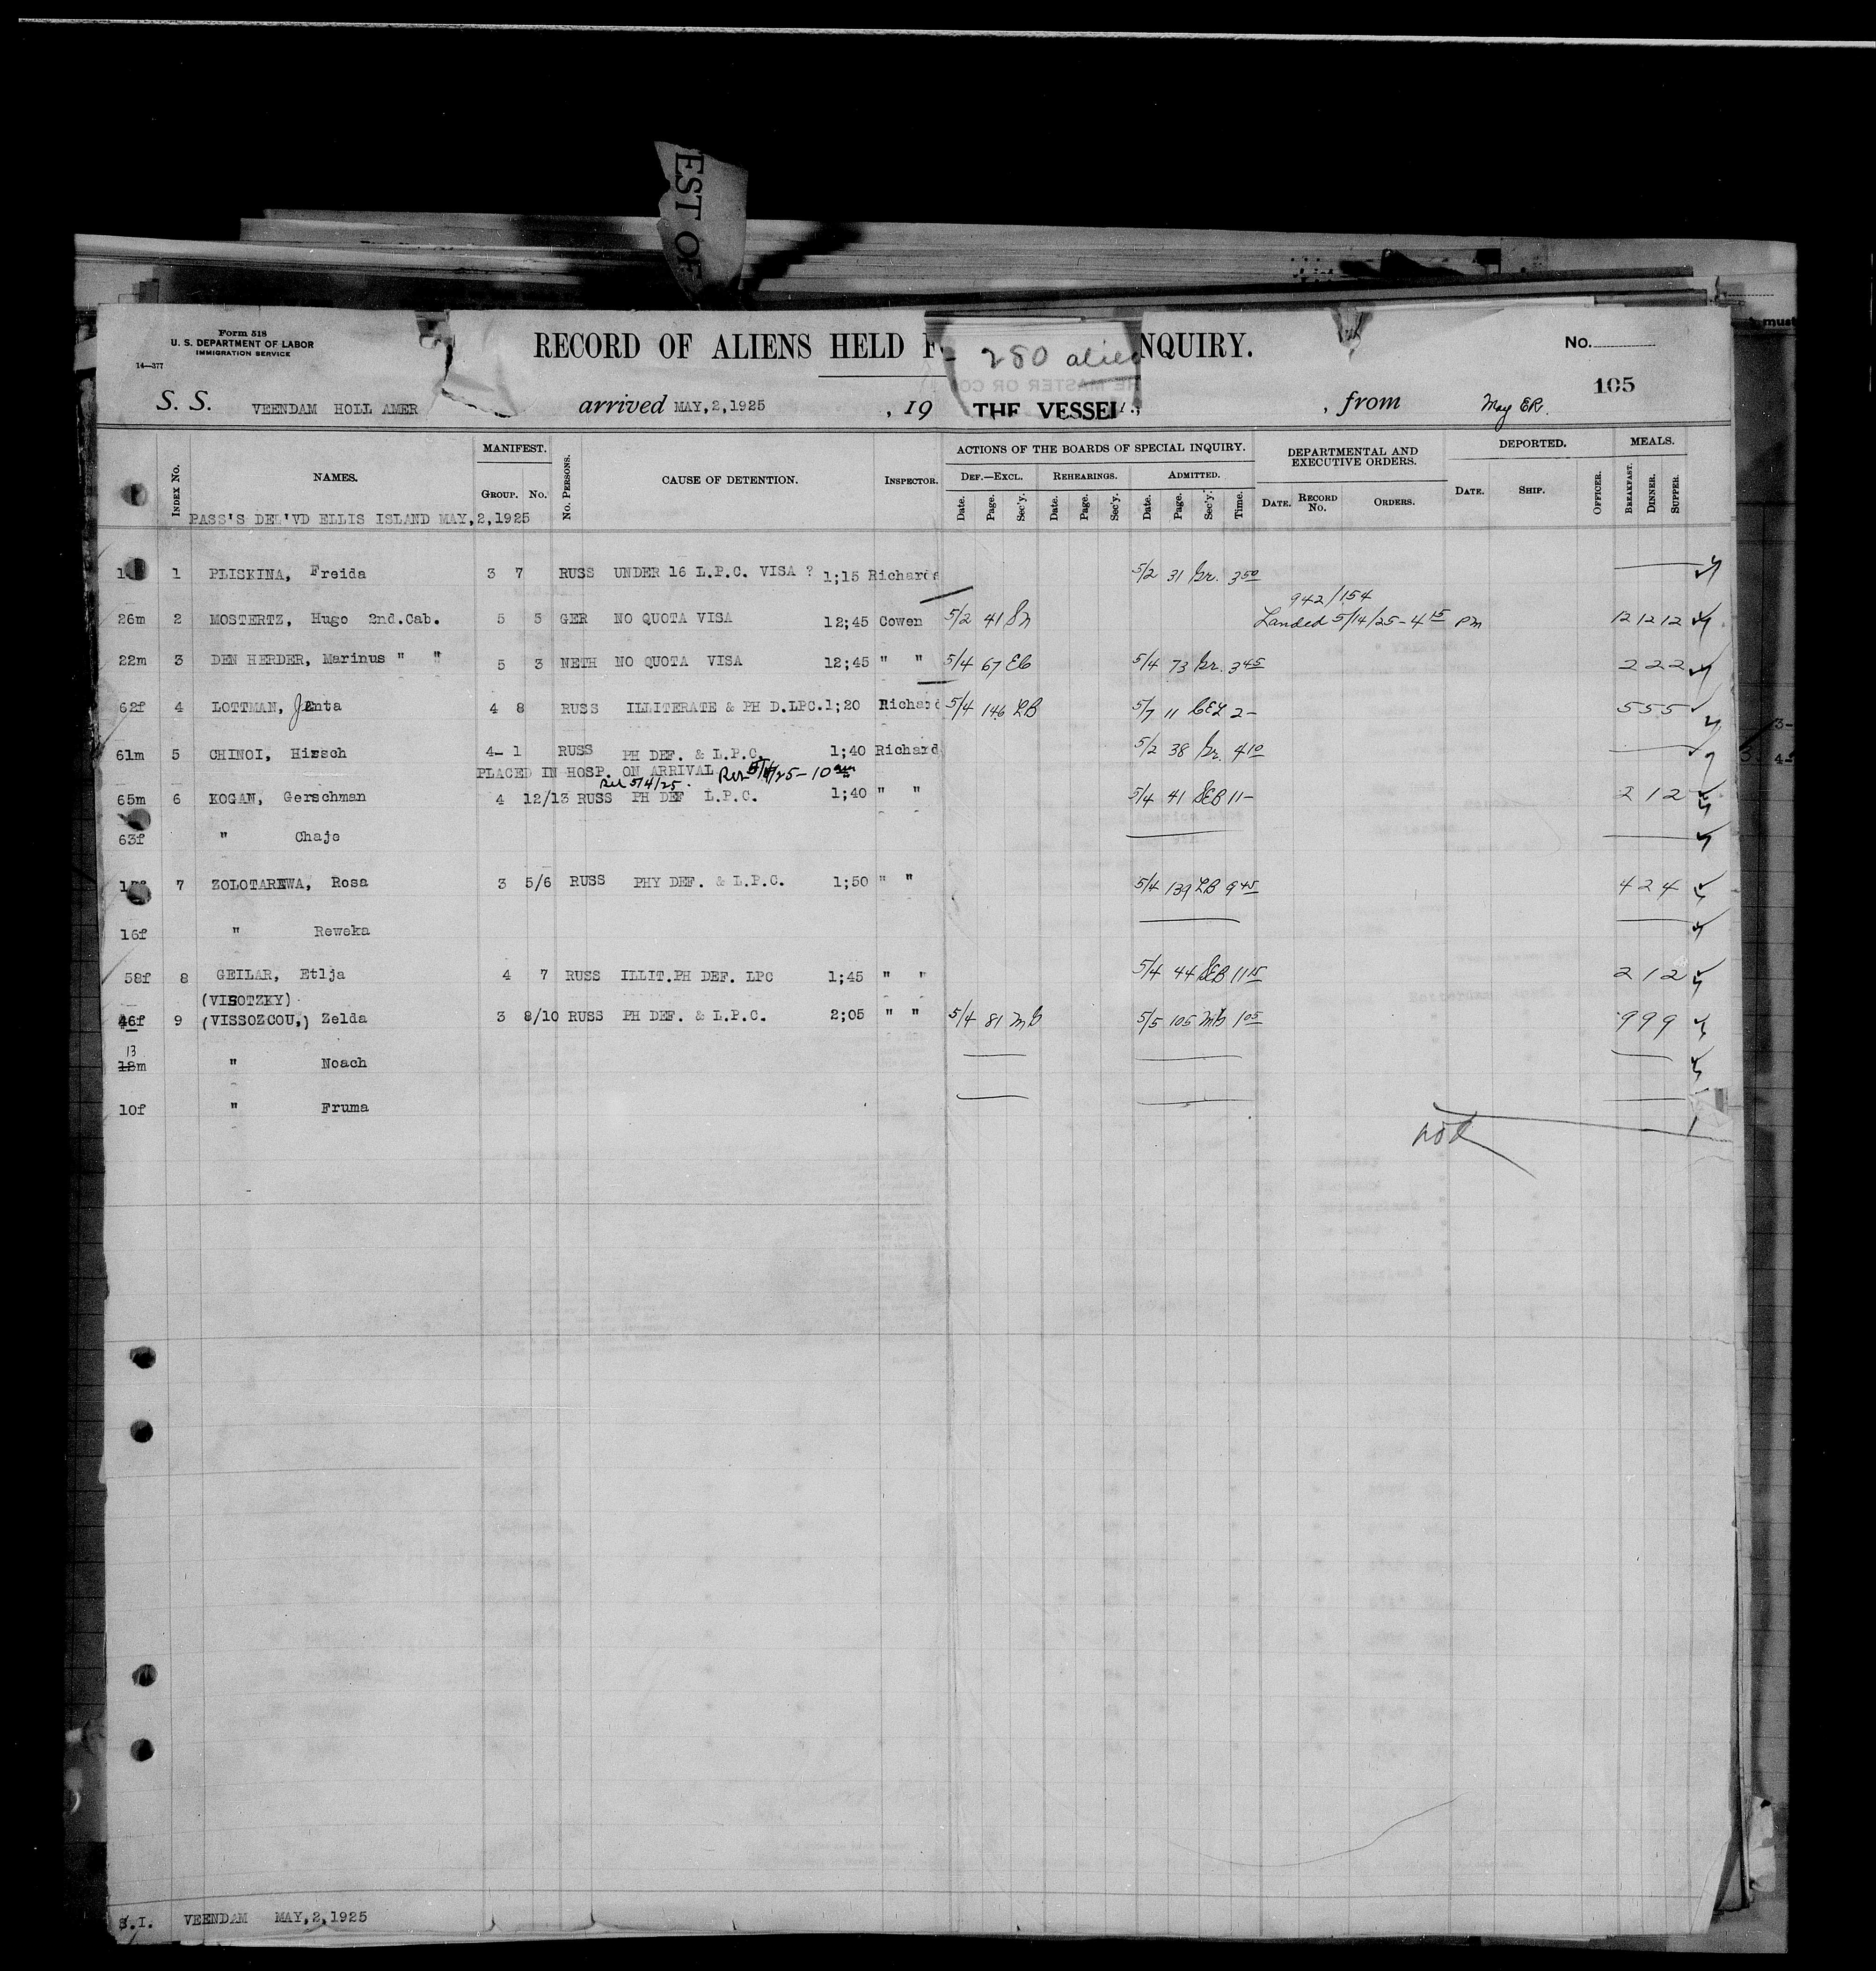 EST OF
Form 518
U. S. DEPARTMENT OF LABOR
IMMIGRATION SERVICE
14—377
RECORD OF ALIENS HELD F 280 alien NQUIRY.
No.
105
S. S. VEENDAM HOLL AMER arrived MAY,2,1925 , 19 THE VESSEL , from May ER.
INDEX No. NAMES. MANIFEST. GROUP. No. No. PERSONS. CAUSE OF DETENTION. INSPECTOR. ACTIONS OF THE BOARDS OF SPECIAL INQUIRY. DEPARTMENTAL AND EXECUTIVE ORDERS. DEPORTED. MEALS.
DEF.—EXCL. REHEARINGS. ADMITTED.
Date. Page. Sec'y. Date. Page. Sec'y. Date. Page. Sec'y. Time. DATE. RECORD No. ORDERS. DATE. SHIP. OFFICER. BREAKFAST. DINNER. SUPPER.
PASS'S DEL'VD ELLIS ISLAND MAY,2,1925
1 PLISKINA, Freida 3 7 RUSS UNDER 16 L.P.C. VISA ? 1;15 Richards 5/2 31 Gr. 3 50
942/154
26m 2 MOSTERTZ, Hugo 2nd.Cab. 5 5 GER NO QUOTA VISA 12;45 Cowen 5/2 41 Sn Landed 5/14/25 - 4 15 pm 12 12 12
22m 3 DEN HERDER, Marinus " " 5 3 NETH NO QUOTA VISA 12;45 " " 5/4 67 EC 5/4 73 Gr. 3 45 2 2 2
62f 4 LOTTMAN, Jenta 4 8 RUSS ILLITERATE & PH D.LPC. 1;20 Richard 5/4 146 LB 5/7 11 CEL 2- 5 5 5
61m 5 CHINOI, Hirsch 4- 1 RUSS PH DEF. & L.P.C. 1;40 Richard 5/2 38 Gr. 4 10
PLACED IN HOSP. ON ARRIVAL
Rel 5/4/25.
65m 6 KOGAN, Gerschman 4 12/13 RUSS PH DEF L.P.C. 1;40 " " 5/4 41 SEB 11- 2 1 2
63f " Chaje
7 ZOLOTAREWA, Rosa 3 5/6 RUSS PHY DEF. & L.P.C. 1;50 " " 5/4 139 LB 9 45 4 2 4
16f " Reweka
58f 8 GEILAR, Etlja 4 7 RUSS ILLIT.PH DEF. LPC 1;45 " " 5/4 44 SEB 11 15 2 1 2
(VISOTZKY)
46f 9 (VISSOZCOU,) Zelda 3 8/10 RUSS PH DEF. & L.P.C. 2;05 " " 5/4 81 MG 5/5 105 MG 1 05 9 9 9
13
12m " Noach
10f " Fruma
S.I. VEENDAM MAY,2,1925